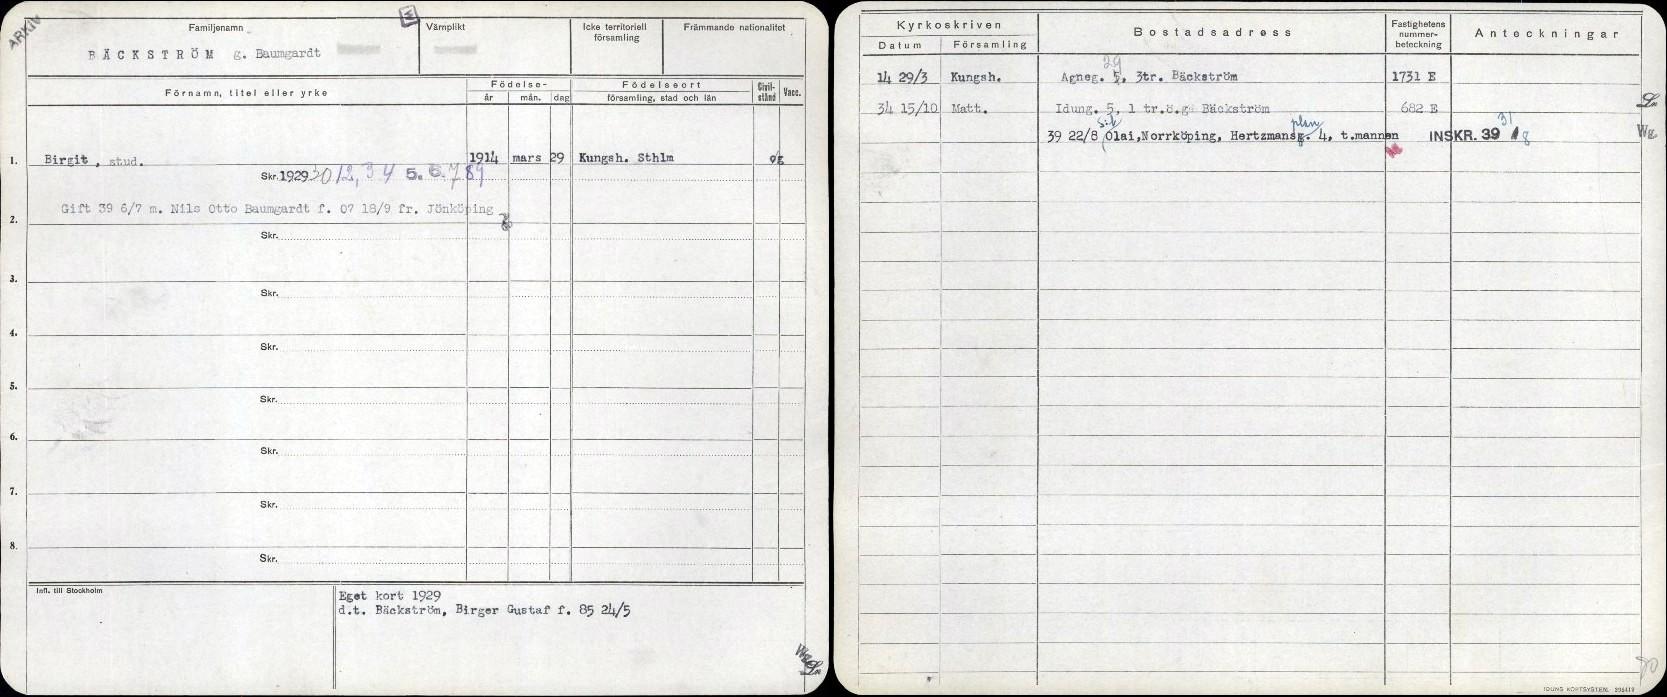 ARKIV
Familjenamn
BÄCKSTRÖM g. Baumgardt
Värnplikt
Icke territoriell församling
Främmande nationalitet
Förnamn, titel eller yrke
Födelse-
år mån. dag
Födelseort
församling, stad och län
Civil-stånd
Vacc.
1. Birgit, stud. 1914 mars 29 Kungsh. Sthlm g
Skr. 1929 30 1 2, 3 4 5. 6. 7 8 9
Gift 39 6/7 m. Nils Otto Baumgardt f. 07 18/9 fr. Jönköping
2.
Skr.
3.
Skr.
4.
Skr.
5.
Skr.
6.
Skr.
7.
Skr.
8.
Skr.
Infl. till Stockholm
Eget kort 1929
d.t. Bäckström, Birger Gustaf f. 85 24/5
Kyrkoskriven
Datum Församling
Bostadsadress
Fastighetens nummer-beteckning
Anteckningar
29
14 29/3 Kungsh. Agneg. 5, 3tr. Bäckström 1731 E
34 15/10 Matt. Idung. 5, 1 tr.ö.g Bäckström 682 E
S:t plan 31
39 22/8 Olai, Norrköping, Hertzmansg. 4, t.mannen INSKR. 39 8
Wg.
IDUNS KORTSYSTEM. 396419